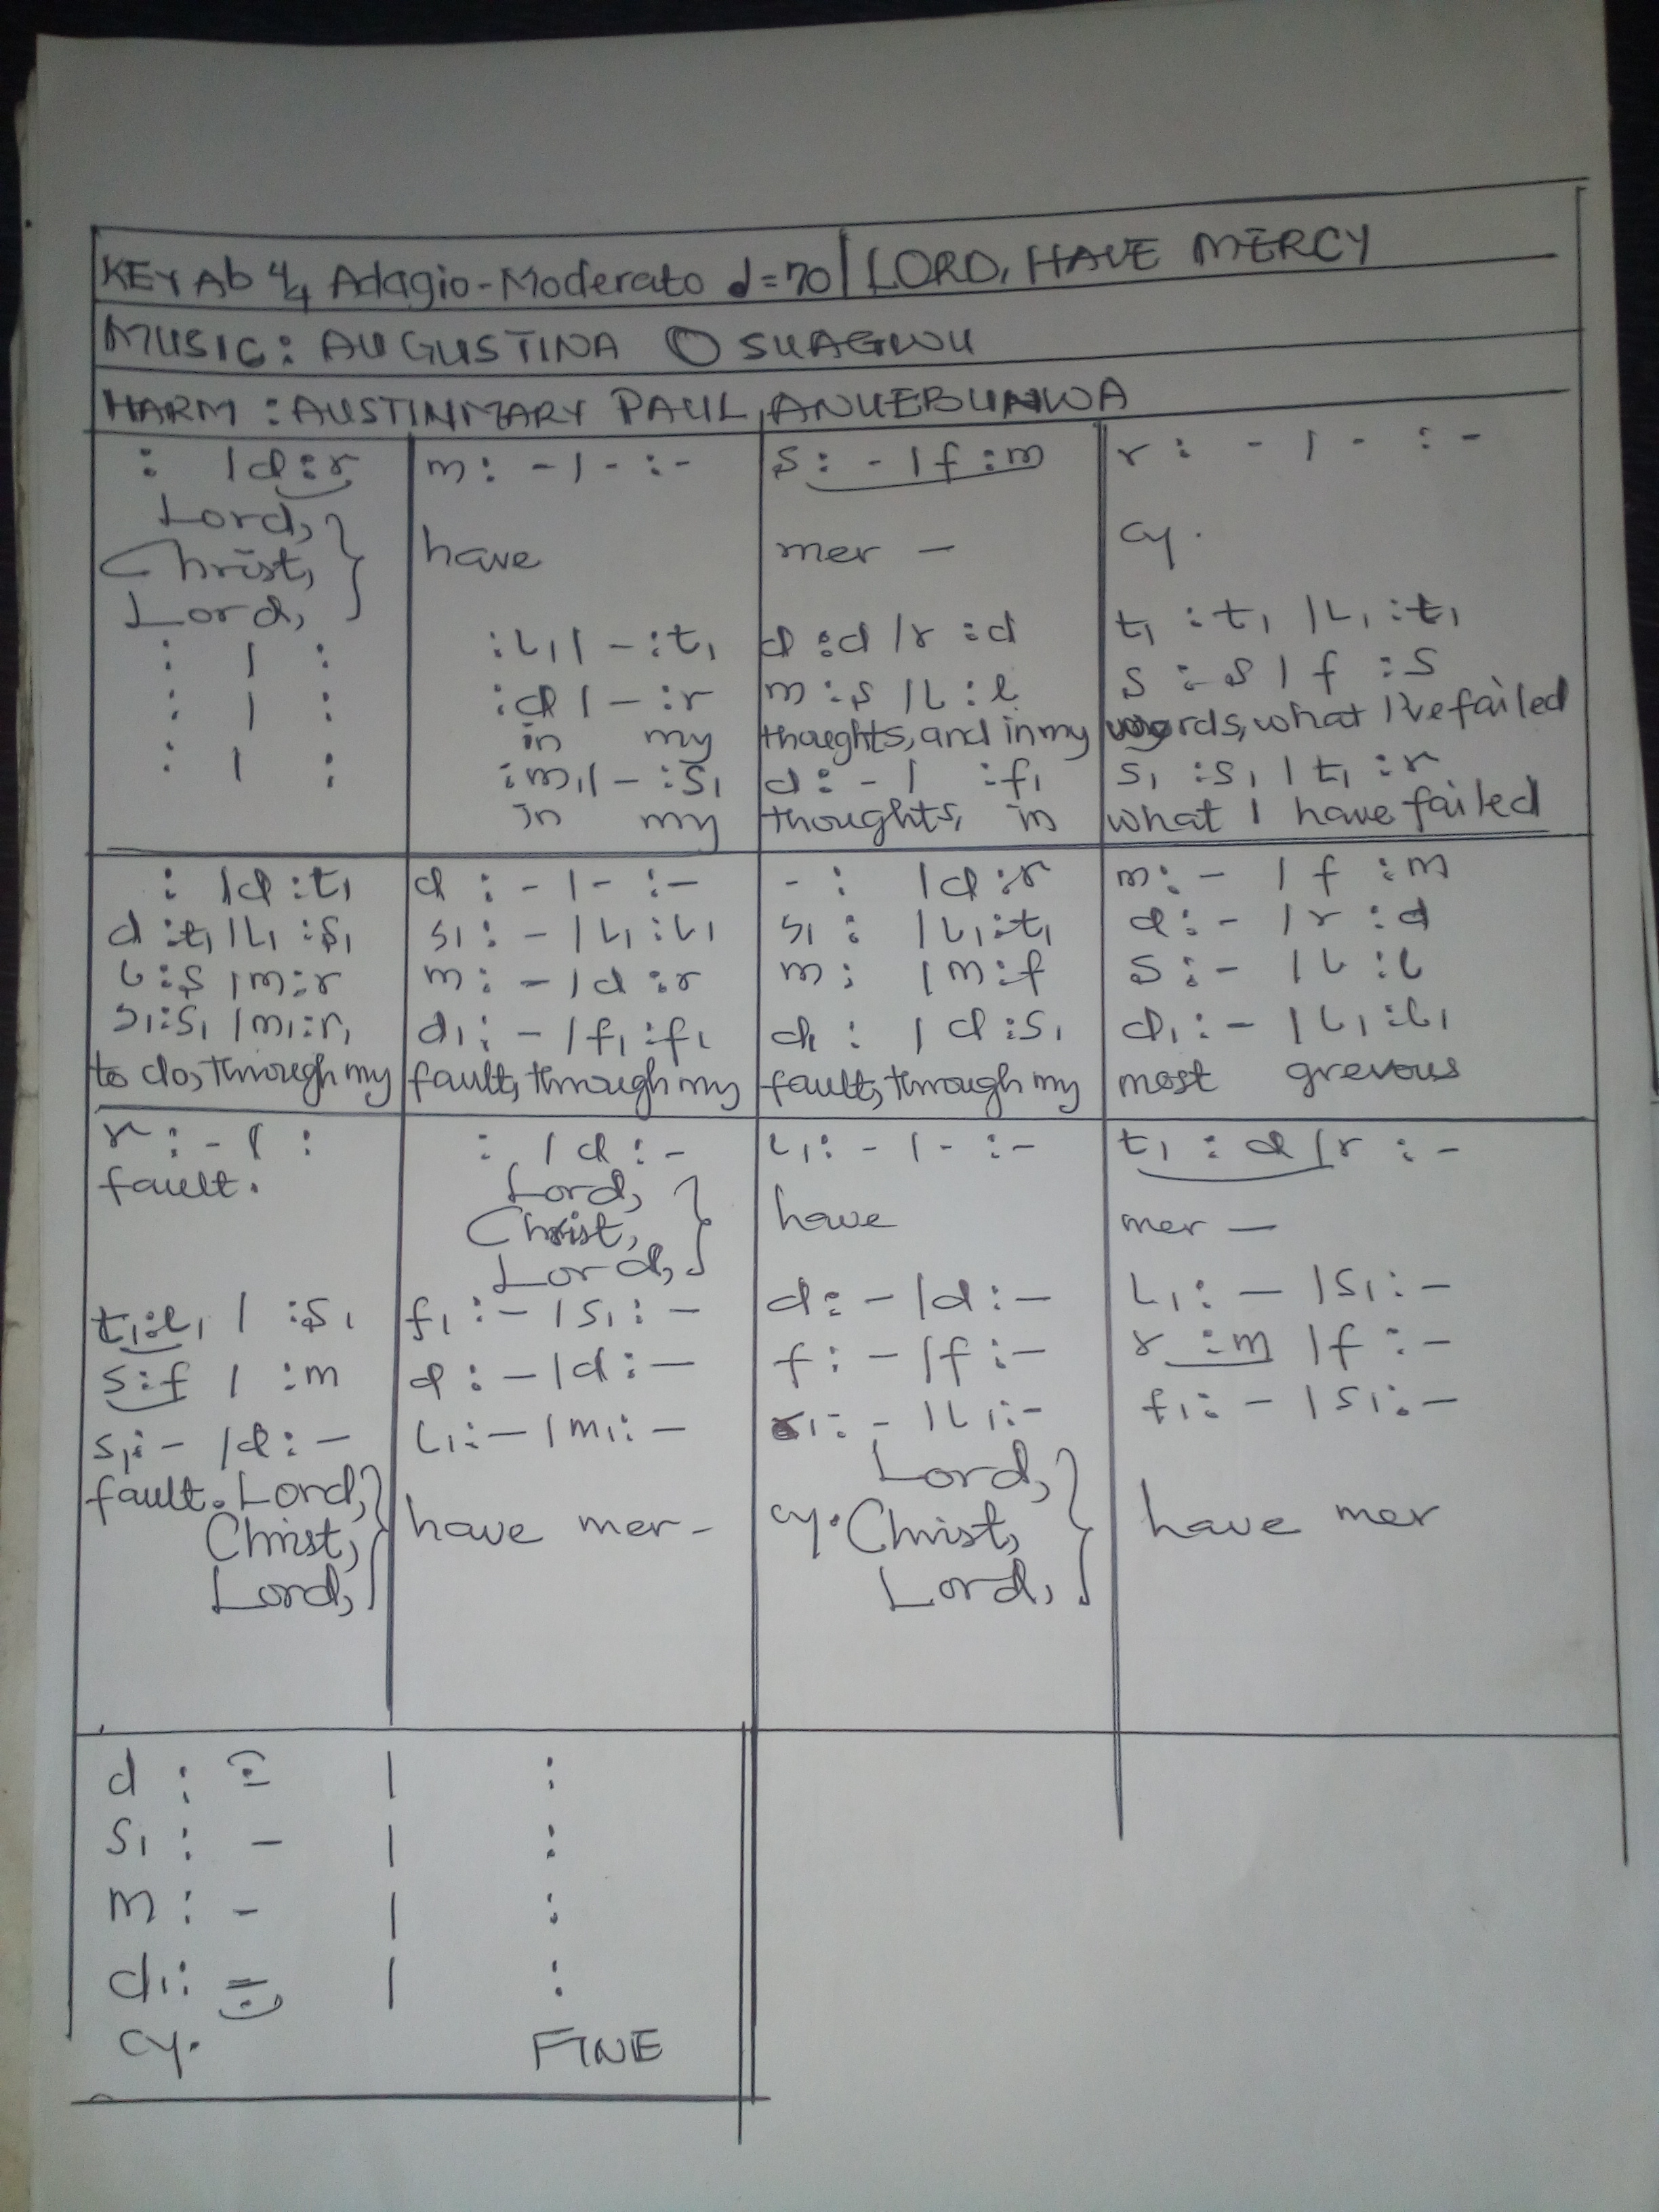 KEY Ab 4/4 Adagio-Moderato d=70 | LORD, HAVE MERCY
MUSIC: AUGUSTINA OSUAGWU
HARM : AUSTINMARY PAUL, ANUEBUNWA
: | d : r m : - | - : - s : - | f : m r : - | - : -
Lord,
Christ, } have mer — cy.
Lord,
: | : : l₁ | - : t₁ d : d | r : d t₁ : t₁ | l₁ : t₁
: | : : d | - : r m : s | l : l s : s | f : s
in my thoughts, and in my words, what I've failed
: | : : m₁ | - : s₁ d : - | : f₁ s₁ : s₁ | t₁ : r
in my thoughts, in what I have failed
: | d : t₁ d : - | - : - - : | d : r m : - | f : m
d : t₁ | l₁ : s₁ s₁ : - | l₁ : l₁ s₁ : | l₁ : t₁ d : - | r : d
l : s | m : r m : - | d : r m : | m : f s : - | l : l
s₁ : s₁ | m₁ : r₁ d₁ : - | f₁ : f₁ d₁ : | d : s₁ d₁ : - | l₁ : l₁
to do, through my fault, through my fault, through my most grevous
r : - | : : | d : - l₁ : - | - : - t₁ : d | r : -
fault. Lord,
Christ, } have mer —
Lord,
t₁ : l₁ | : s₁ f₁ : - | s₁ : - d : - | d : - l₁ : - | s₁ : -
s : f | : m d : - | d : - f : - | f : - r : m | f : -
s₁ : - | d : - l₁ : - | m₁ : - : - | l₁ : - f₁ : - | s₁ : -
fault. Lord, Lord,
Christ, } have mer - cy. Christ, } have mer
Lord, Lord,
d : - | :
s₁ : - | :
m : - | :
d₁ : - | :
cy. FINE